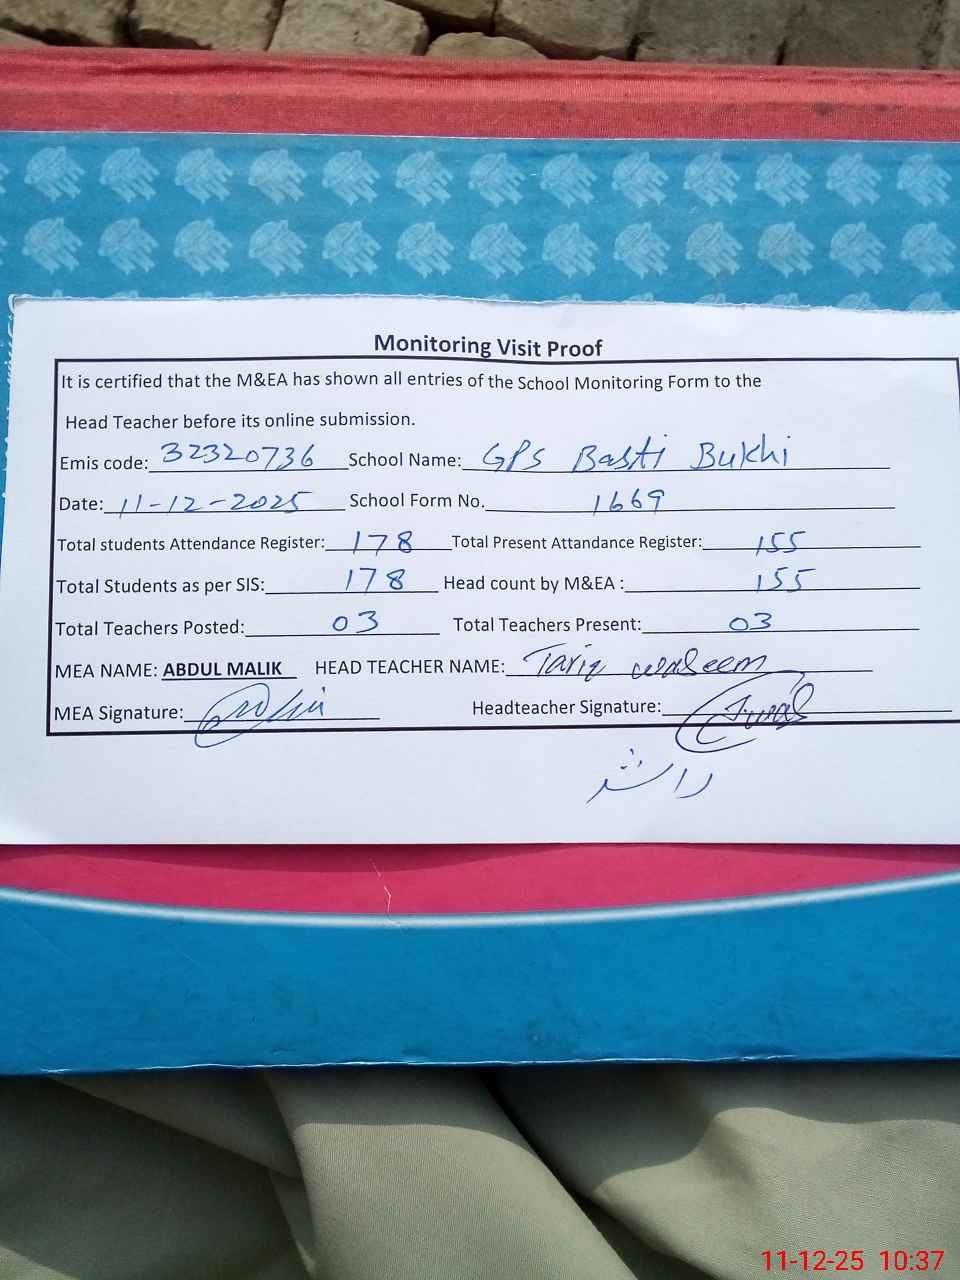 Monitoring Visit Proof
It is certified that the M&EA has shown all entries of the School Monitoring Form to the
Head Teacher before its online submission.
Emis code: 32320736 School Name: GPS Basti Bukhi
Date: 11-12-2025 School Form No. 1669
Total students Attendance Register: 178 Total Present Attandance Register: 155
Total Students as per SIS: 178 Head count by M&EA : 155
Total Teachers Posted: 03 Total Teachers Present: 03
MEA NAME: ABDUL MALIK HEAD TEACHER NAME: Tariq waseem
MEA Signature: Headteacher Signature:
راشد
11-12-25 10:37